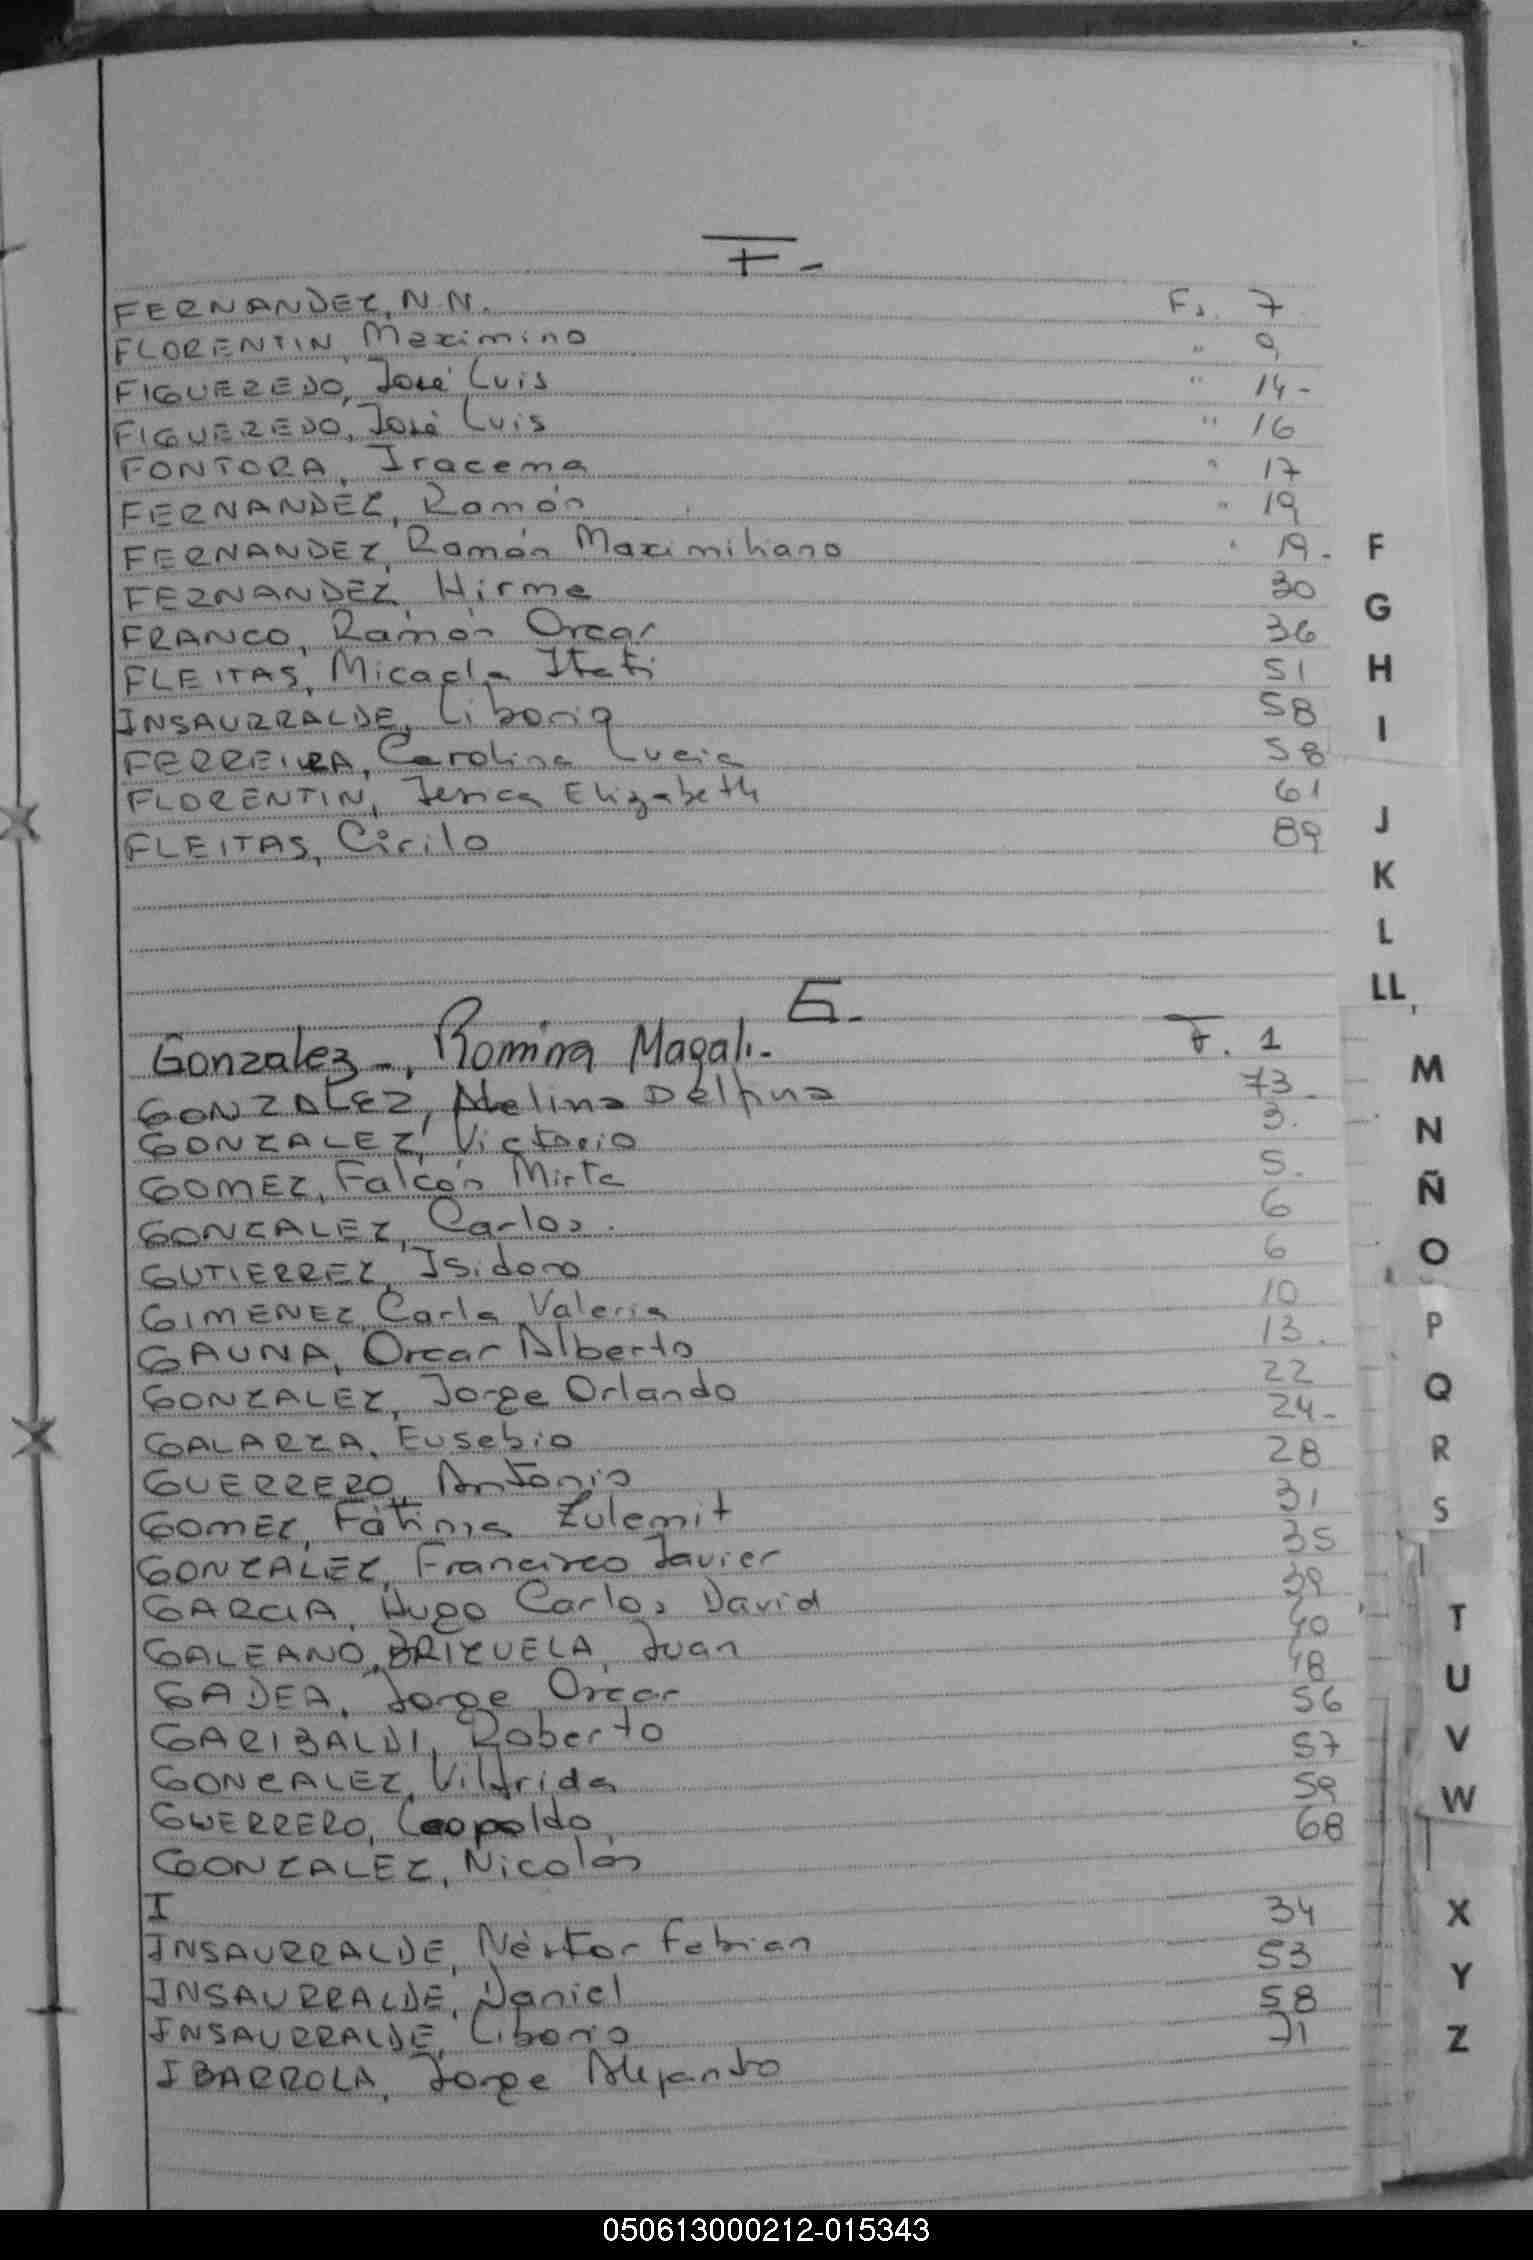 F -
FERNANDEZ, N.N. Fs. 7
FLORENTIN, Maximino " 9
FIGUEREDO, José Luis " 14-
FIGUEREDO, José Luis " 16
FONTORA, Iracema " 17
FERNANDEZ, Ramón " 19
FERNANDEZ, Ramón Maximiliano " 19.
FERNANDEZ, Hirma 30
FRANCO, Ramón Oscar 36
FLEITAS, Micaela Itati 51
INSAURRALDE, Liboria 58
FERREIRA, Carolina Lucia 58
FLORENTIN, Jesica Elizabeth 61
FLEITAS, Cirilo 89
G.
Gonzalez-, Romina Magali.- F. 1
GONZALEZ, Adelina Delfina 73
GONZALEZ, Victorio 3.
GOMEZ, Falcón Mirta 5.
GONZALEZ, Carlos. 6
GUTIERREZ, Isidoro 6
GIMENEZ, Carla Valeria 10
GAUNA, Oscar Alberto 13.
GONZALEZ, Jorge Orlando 22
GALARZA, Eusebio 24-
GUERRERO, Antonio 28
GOMEZ, Fátima Zulemit 31
GONZALEZ, Francisco Javier 35
GARCIA, Hugo Carlos David 39
GALEANO, BRIZUELA, Juan 40
GADEA, Jorge Oscar 48
GARIBALDI, Roberto 56
GONZALEZ, Vilfrida 57
GUERRERO, Leopoldo, 59
GONZALEZ, Nicolas 68
I
INSAURRALDE, Néstor Fabian 34
INSAURRALDE, Daniel 53
INSAURRALDE, Liborio 58
IBARROLA, Jorge Alejandro 71
F
G
H
I
J
K
L
LL
M
N
Ñ
O
P
Q
R
S
T
U
V
W
X
Y
Z
050613000212-015343